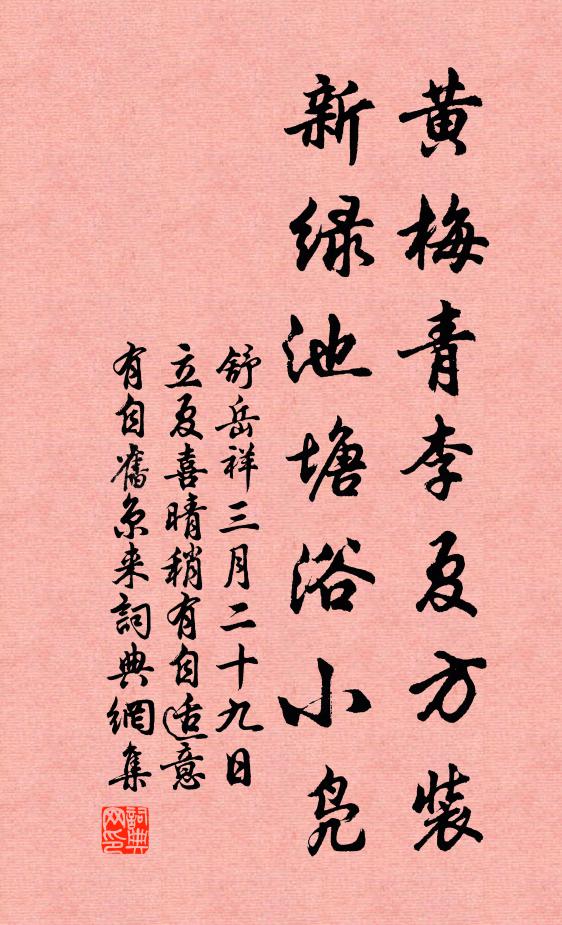 黄梅青李夏方装
新绿池塘浴小凫
舒岳祥三月二十九日
立夏喜晴稍有自适意
有自舊京来詞典網集
詞典
网印